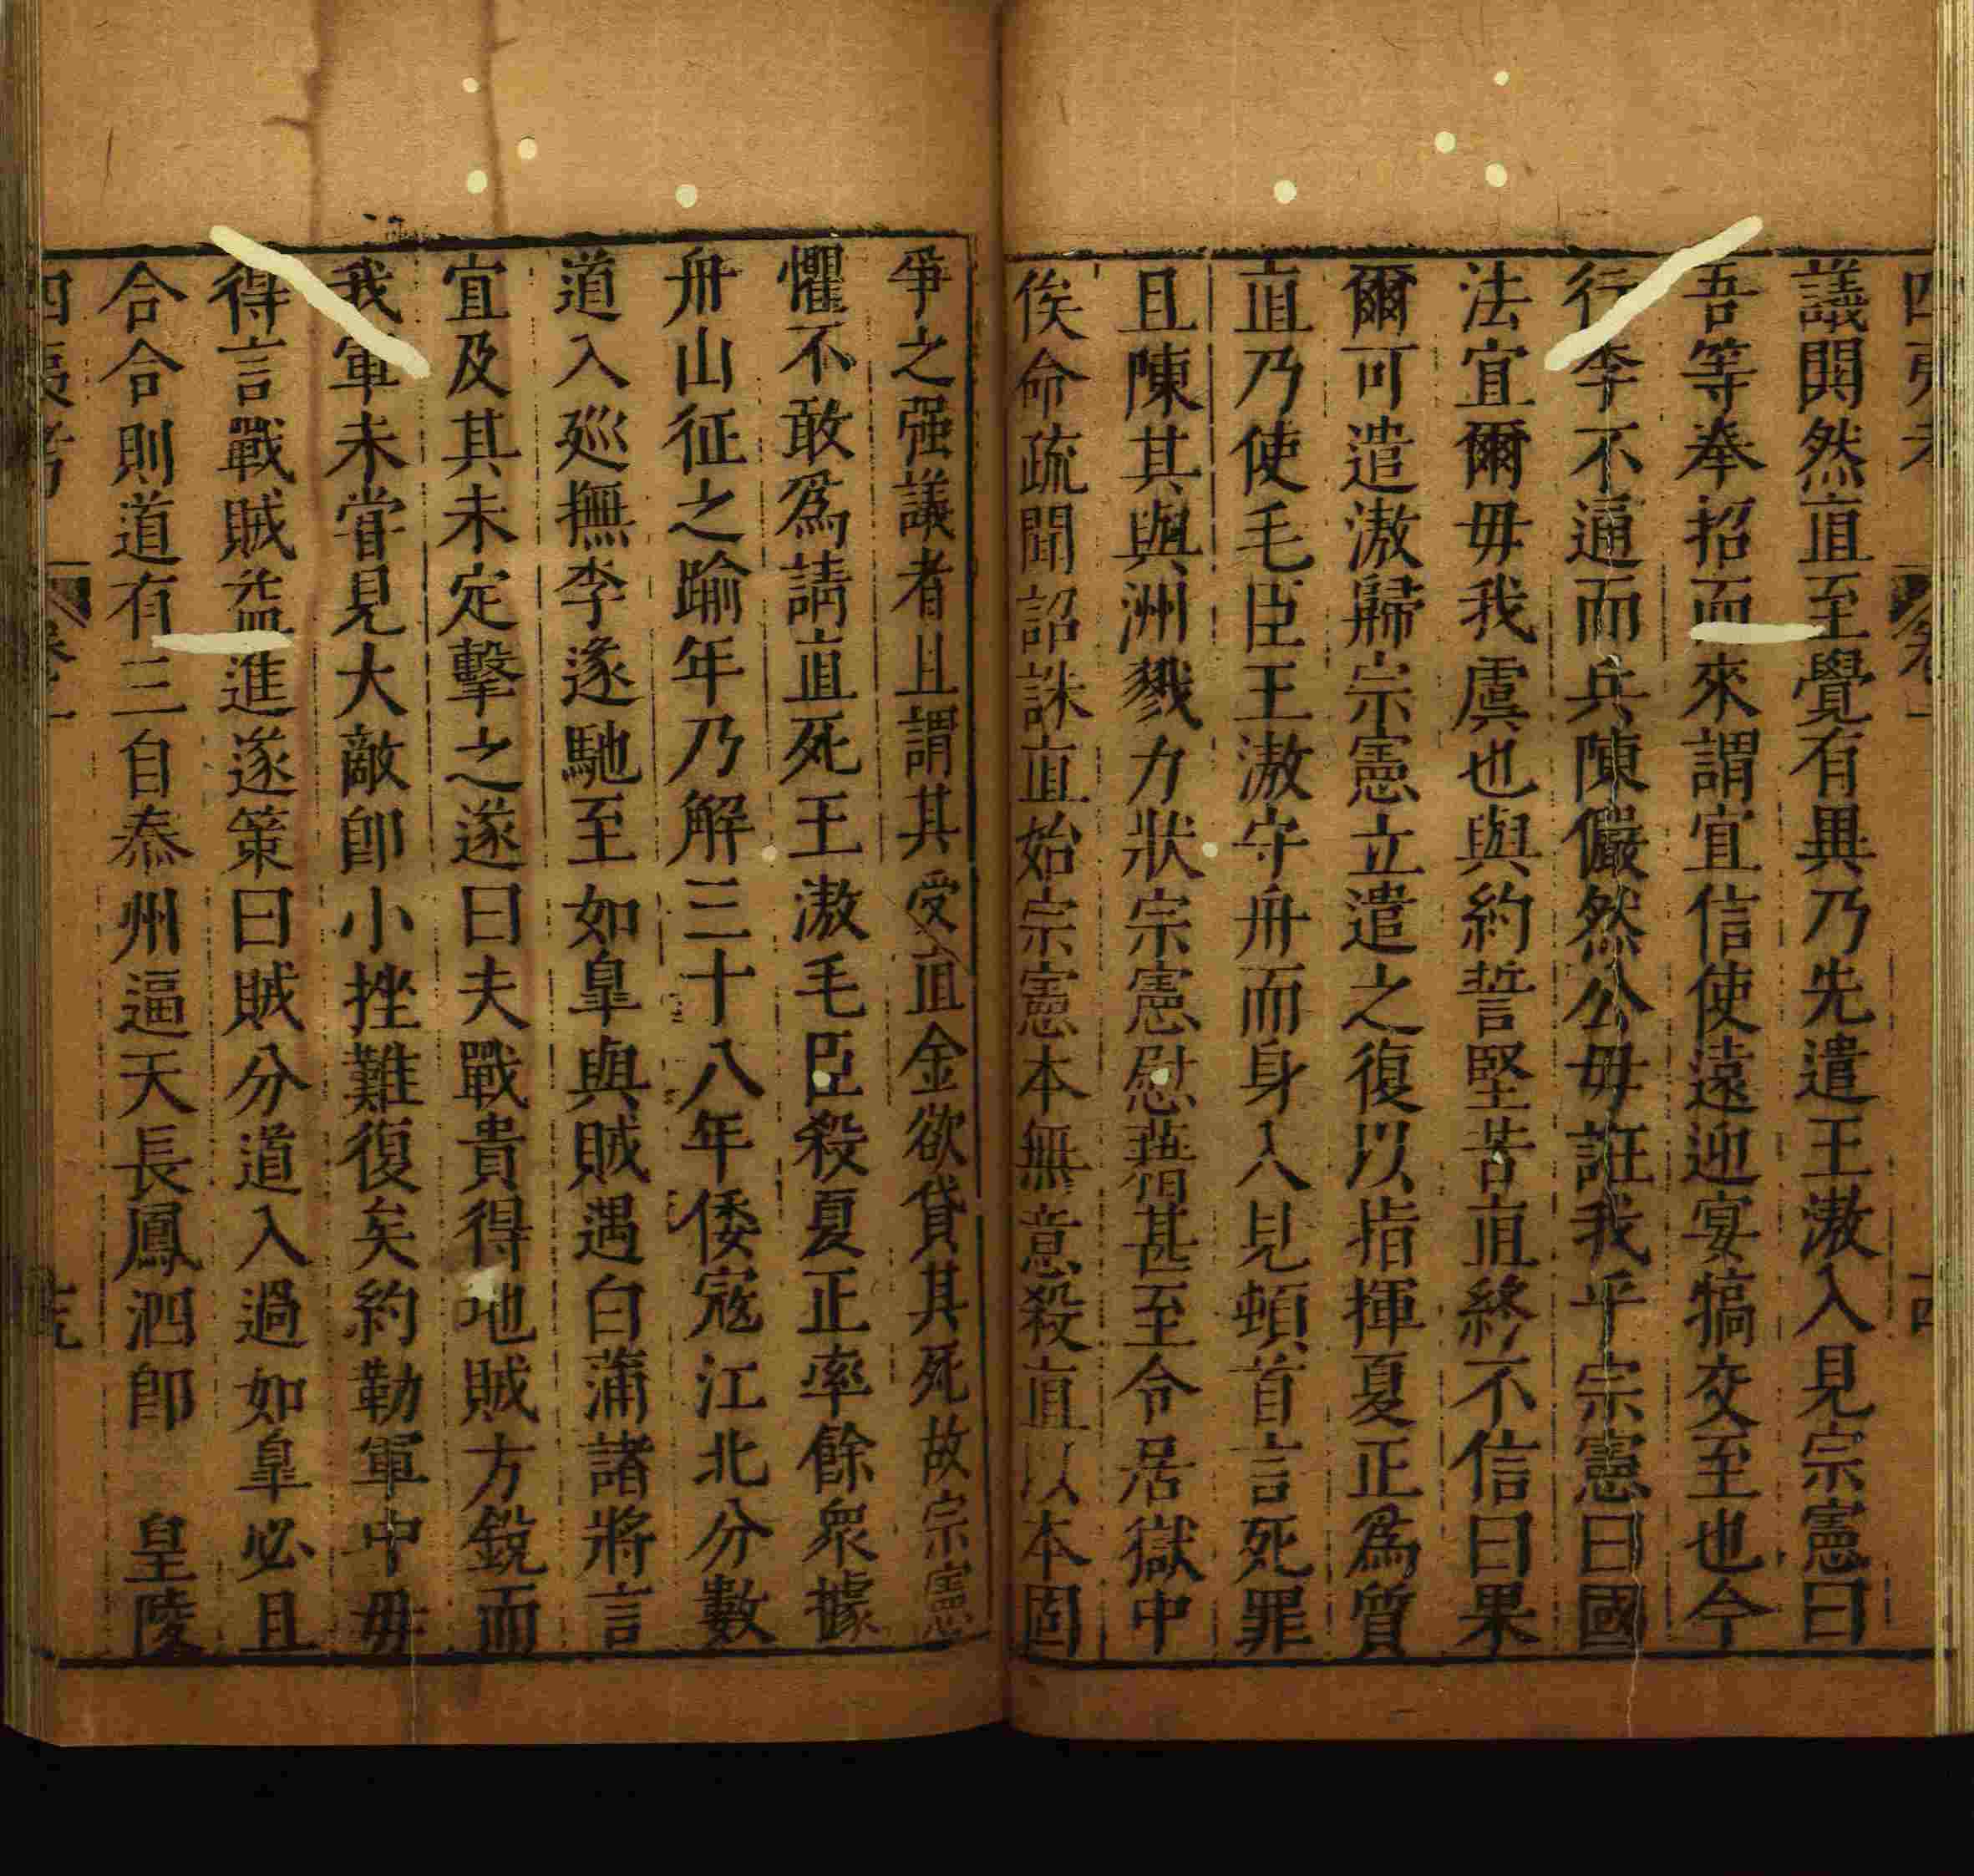 四夷考
議閧然直至覺有異乃先遣王滶入見宗憲曰
吾等奉招而來謂宜信使遠迎宴犒交至也今
行李不通而兵陳儼然公毋誑我乎宗憲曰國
法宜爾毋我虞也與約誓堅苦直終不信曰果
爾可遣滶歸宗憲立遣之復以指揮夏正爲質
直乃使毛臣王滶守舟而身入見頓首言死罪
且陳其與洲戮力狀宗憲慰藉甚至令居獄中
俟命疏聞詔誅直始宗憲本無意殺直以本固
爭之强議者且謂其受直金欲貸其死故宗憲
懼不敢爲請直死王滶毛臣殺夏正率餘衆據
舟山征之踰年乃解三十八年倭寇江北分數
道入廵撫李遂馳至如皐與賊遇白蒲諸將言
宜及其未定擊之遂曰夫戰貴得地賊方銳而
我軍未嘗見大敵卽小挫難復矣約勒軍中毋
得言戰賊益進遂策曰賊分道入過如皐必且
合合則道有三自泰州逼天長鳳泗卽　皇陵
四夷考